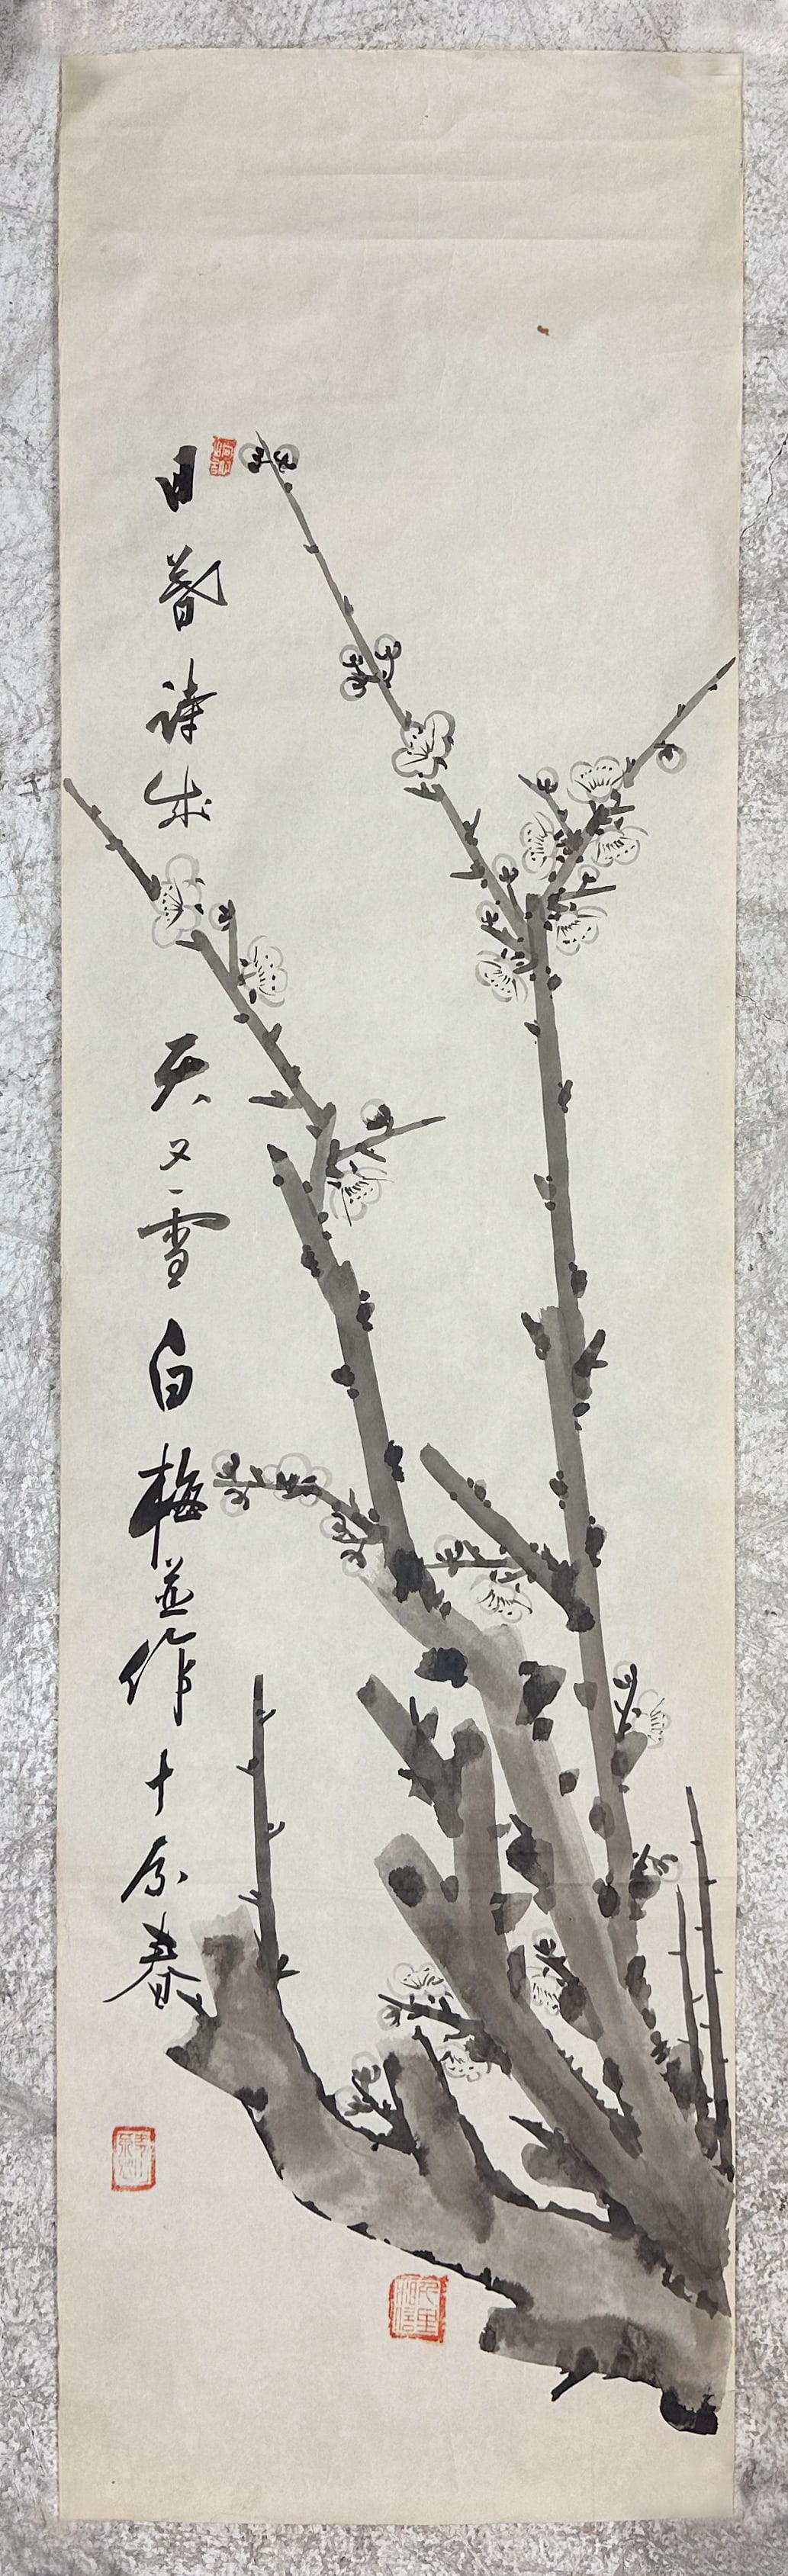 日暮詩成天又雪白梅並作十分春